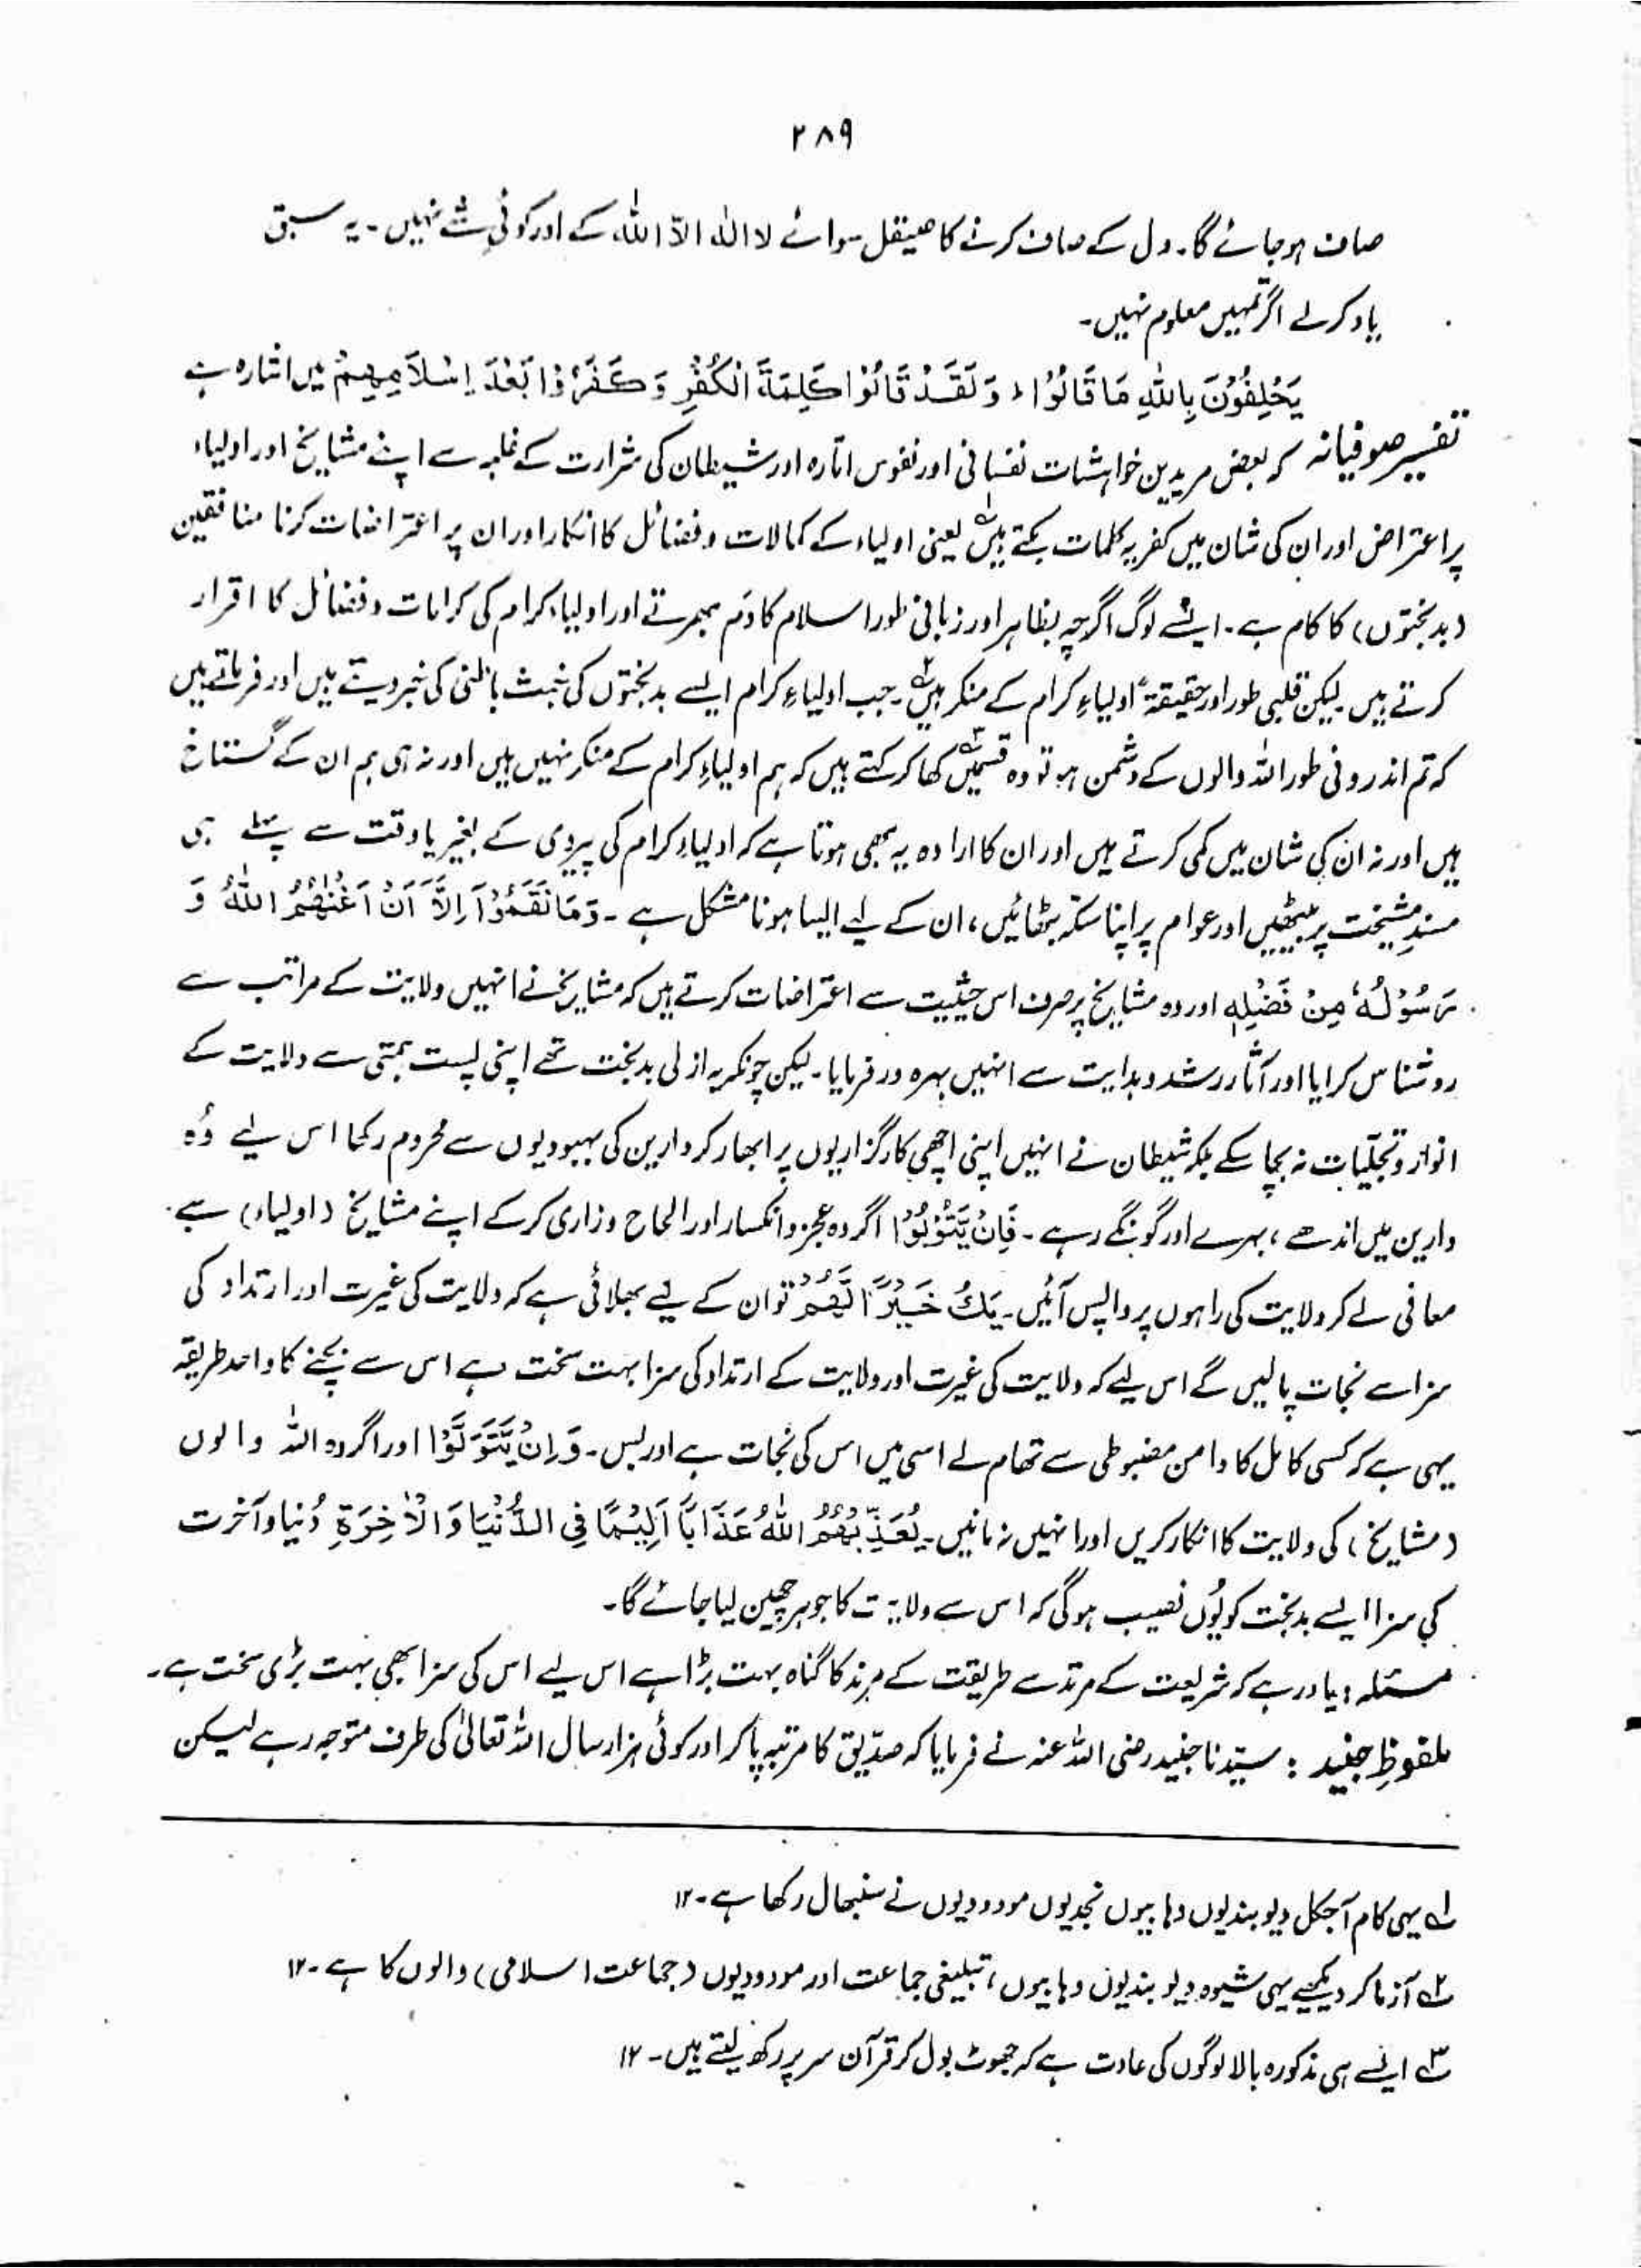 ۲۸۹
صاف ہو جائے گا۔ دل کے صاف کرنے کا صیقل سوائے لا الٰہ الّا اللہ کے اور کوئی شے نہیں۔ یہ سبق
یاد کرلے اگر تمہیں معلوم نہیں۔
يَحْلِفُوْنَ بِاللّٰهِ مَا قَالُوْا ؕ وَلَقَدْ قَالُوْا كَلِمَةَ الْكُفْرِ وَكَفَرُوْا بَعْدَ اِسْلَامِهِمْ میں اشارہ ہے
تفسیر صوفیانہ کہ بعض مریدین خواہشات نفسانی اور نفوس امارہ اور شیطان کی شرارت کے غلبہ سے اپنے مشایخ اور اولیاء
پر اعتراض اور ان کی شان میں کفریہ کلمات بکتے ہیں۱؎ یعنی اولیاء کے کمالات و فضائل کا انکار اور ان پر اعتراضات کرنا منافقین
(بدبختوں) کا کام ہے۔ ایسے لوگ اگرچہ بظاہر اور زبانی طور اسلام کا دَم بھرتے اور اولیاءِ کرام کی کرامات و فضائل کا اقرار
کرتے ہیں۔ لیکن قلبی طور اور حقیقۃً اولیاءِ کرام کے منکر ہیں۲؎۔ جب اولیاءِ کرام ایسے بدبختوں کی خبث باطنی کی خبر دیتے ہیں اور فرماتے ہیں
کہ تم اندرونی طور اللہ والوں کے دشمن ہو تو وہ قسمیں۳؎ کھا کر کہتے ہیں کہ ہم اولیاءِ کرام کے منکر نہیں ہیں اور نہ ہی ہم ان کے گستاخ
ہیں اور نہ ان کی شان میں کمی کرتے ہیں اور ان کا ارادہ یہ بھی ہوتا ہے کہ اولیاءِ کرام کی پیروی کے بغیر یا وقت سے پہلے ہی
مسندِ مشیخت پر بیٹھیں اور عوام پر اپنا سکّہ بٹھائیں، ان کے لیے ایسا ہونا مشکل ہے۔ وَمَا نَقَمُوْٓا اِلَّآ اَنْ اَغْنٰهُمُ اللّٰهُ وَ
رَسُوْلُهٗ مِنْ فَضْلِهٖ اور وہ مشایخ پر صرف اس حیثیت سے اعتراضات کرتے ہیں کہ مشایخ نے انہیں ولایت کے مراتب سے
روشناس کرایا اور آثار رشد و ہدایت سے انہیں بہرہ ور فرمایا۔ لیکن چونکہ یہ ازلی بدبخت تھے اپنی پست ہمتی سے ولایت کے
انوار و تجلّیات نہ بچا سکے بلکہ شیطان نے انہیں اپنی اچھی کارگزاریوں پر ابھار کر دارین کی بہبودیوں سے محروم رکھا اس لیے وُہ
دارین میں اندھے، بہرے اور گونگے رہے۔ فَاِنْ يَّتُوْبُوْا اگر وہ عجز و انکسار اور الحاح و زاری کرکے اپنے مشایخ (اولیاء) سے
معافی لے کر ولایت کی راہوں پر واپس آئیں۔ يَكُ خَيْرًا لَّهُمْ تو ان کے لیے بھلائی ہے کہ ولایت کی غیرت اور ارتداد کی
سزا سے نجات پالیں گے اس لیے کہ ولایت کی غیرت اور ولایت کے ارتداد کی سزا بہت سخت ہے اس سے بچنے کا واحد طریقہ
یہی ہے کہ کسی کامل کا دامن مضبوطی سے تھام لے اسی میں اس کی نجات ہے اور بس۔ وَاِنْ يَّتَوَلَّوْا اور اگر وہ اللہ والوں
(مشایخ) کی ولایت کا انکار کریں اور انہیں نہ مانیں۔ يُعَذِّبْهُمُ اللّٰهُ عَذَابًا اَلِيْمًا فِى الدُّنْيَا وَالْاٰخِرَةِ دُنیا و آخرت
کی سزا ایسے بدبخت کو یُوں نصیب ہوگی کہ اس سے ولایت کا جوہر چھین لیا جائے گا۔
مسئلہ: یاد رہے کہ شریعت کے مرتد سے طریقت کے مرتد کا گناہ بہت بڑا ہے اس لیے اس کی سزا بھی بہت بڑی سخت ہے۔
ملفوظِ جنید : سیّدنا جنید رضی اللہ عنہ نے فرمایا کہ صدّیق کا مرتبہ پا کر اور کوئی ہزار سال اللہ تعالیٰ کی طرف متوجہ رہے لیکن
۱؎ یہی کام آجکل دیوبندیوں وہابیوں نجدیوں مودودیوں نے سنبھال رکھا ہے۔۱۲
۲؎ آزما کر دیکھیے یہی شیوہ دیوبندیوں وہابیوں، تبلیغی جماعت اور مودودیوں (جماعت اسلامی) والوں کا ہے۔۱۲
۳؎ ایسے ہی مذکورہ بالا لوگوں کی عادت ہے کہ جھوٹ بول کر قرآن سر پر رکھ لیتے ہیں۔ ۱۲